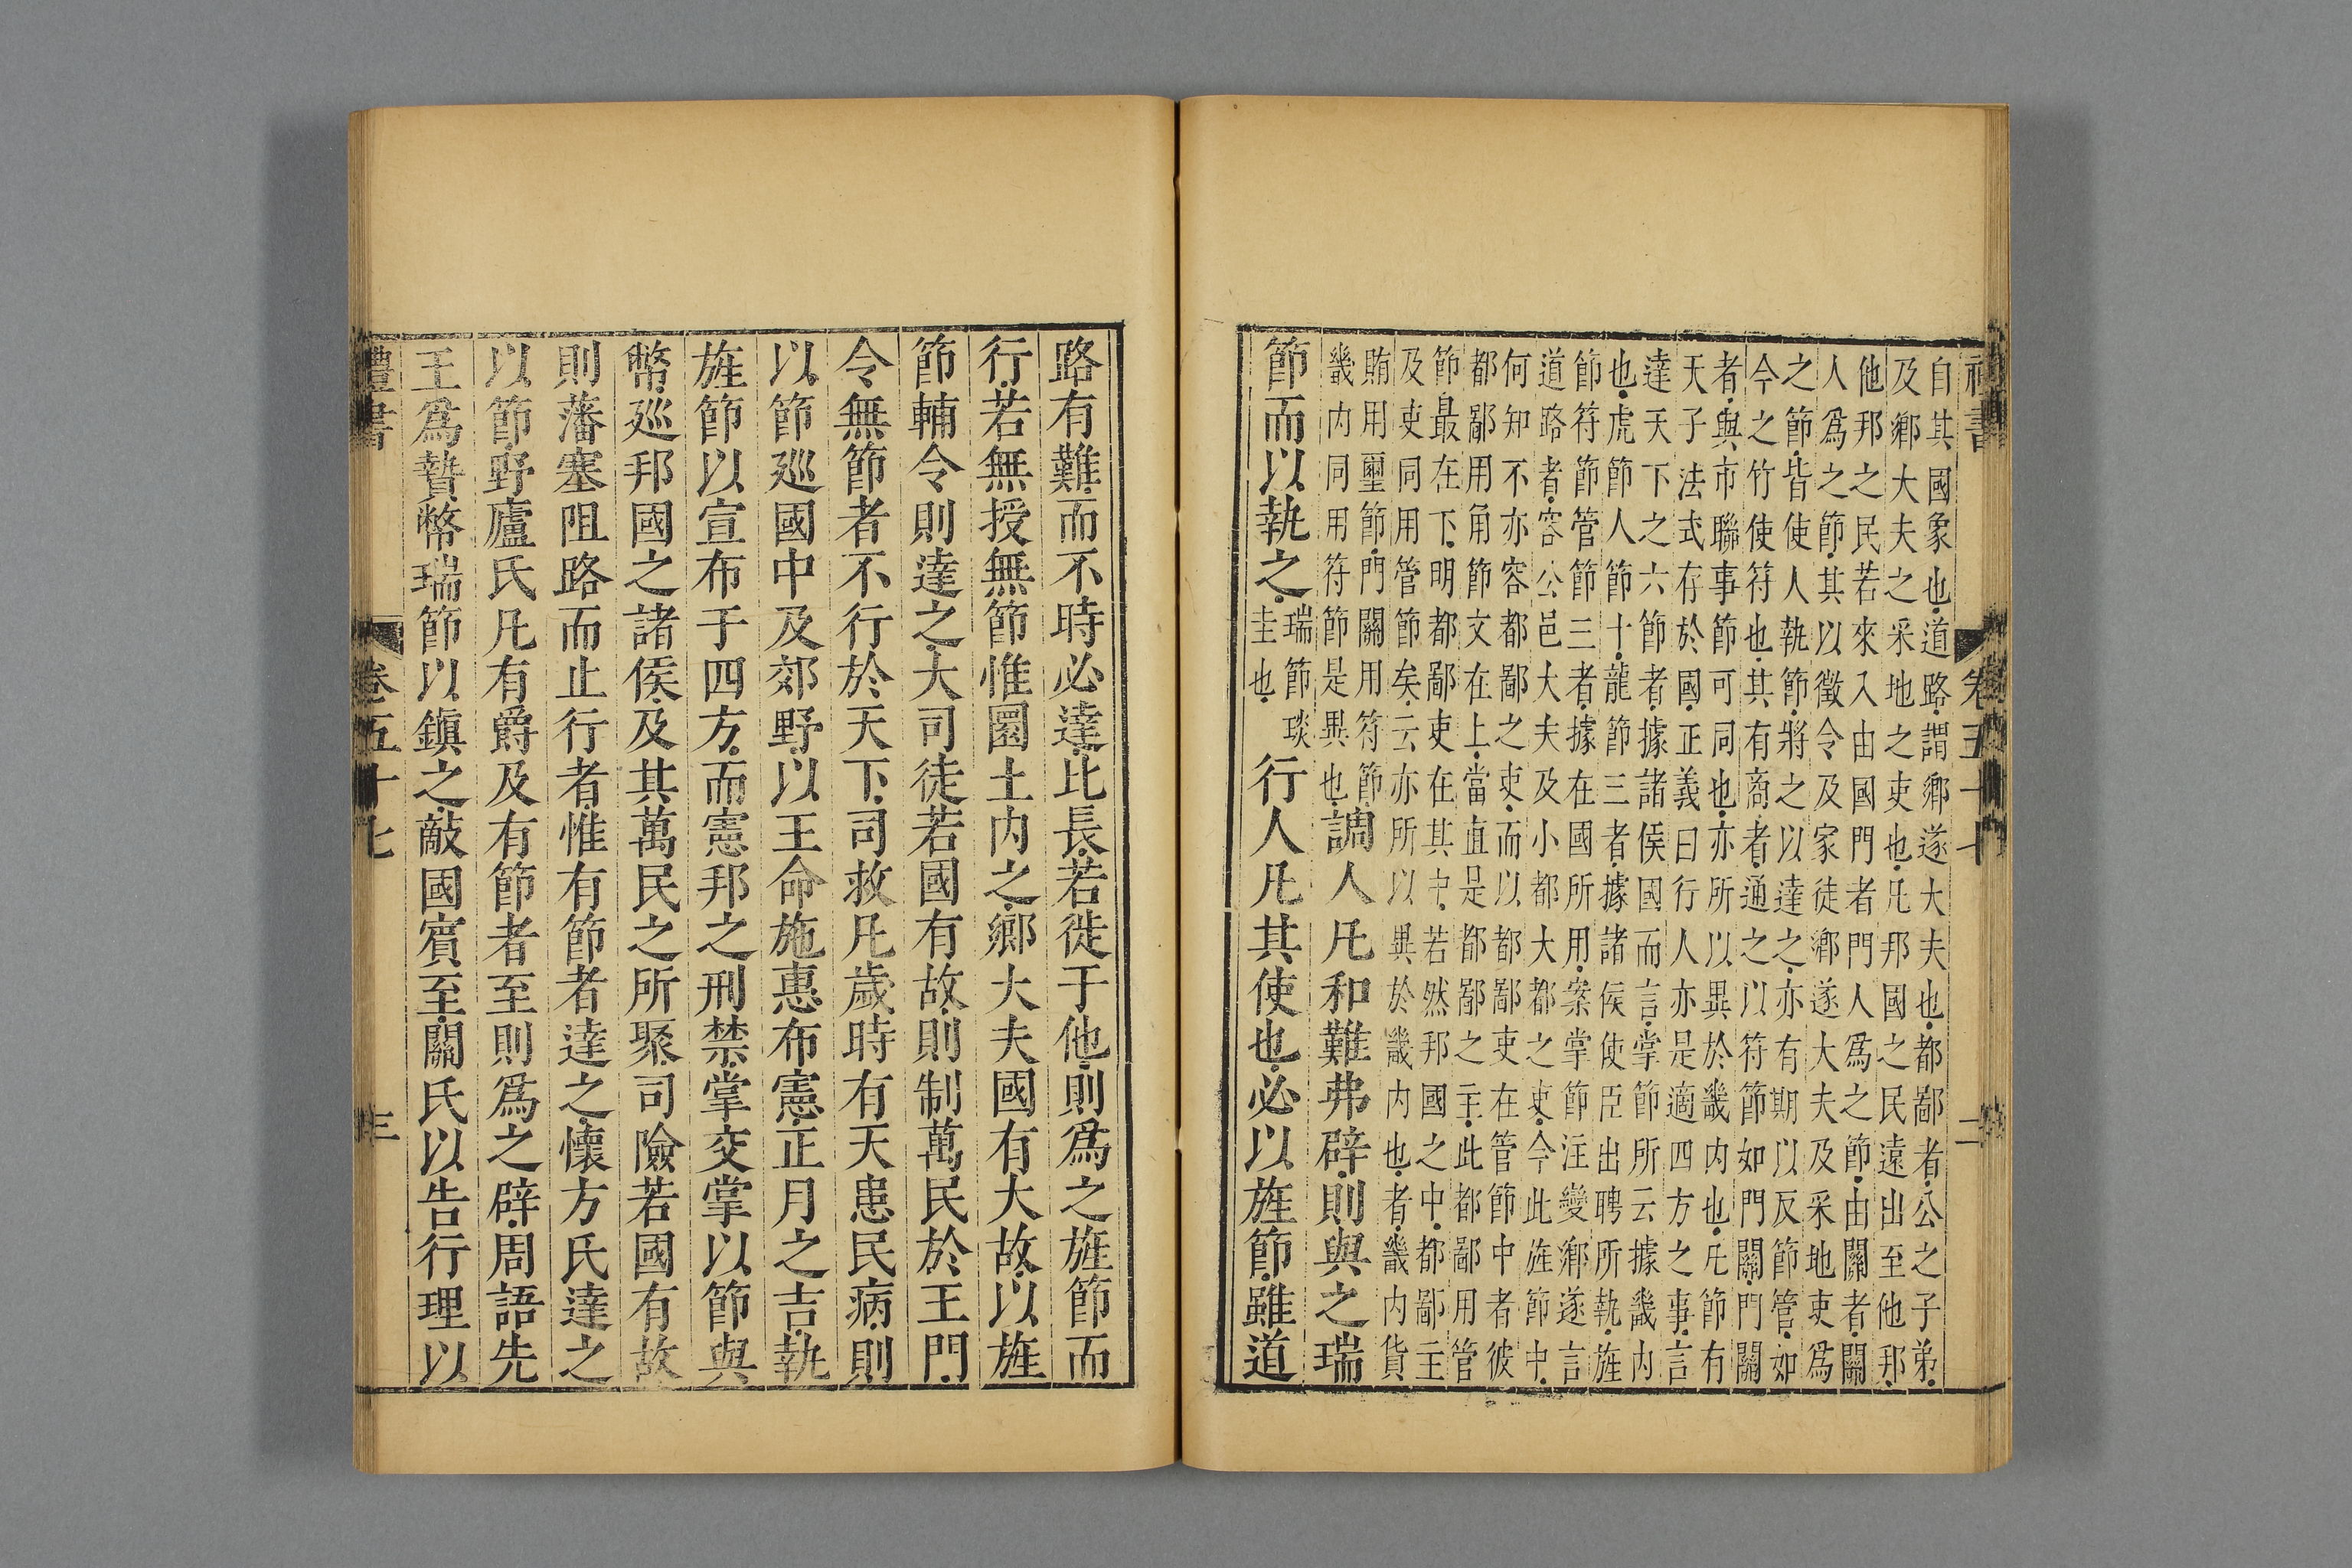 禮書 卷五十七 二
自其國象也道路謂鄉遂大夫也都鄙者公之子弟
及鄉大夫之采地之吏也凡邦國之民遠出至他邦
他邦之民若來入由國門者門人爲之節由關者關
人爲之節其以徵令及家徒鄉遂大夫及采地吏爲
之節皆使人執節將之以達之亦有期以反節管如
今之竹使符也其有商者通之以符節如門關門關
者與市聯事節可同也亦所以異於畿内也凡節有
天子法式存於國正義曰行人亦是適四方之事言
達天下之六節者據諸侯國而言掌節所云據畿内
也虎節人節十龍節三者據諸侯使臣出聘所執旌
節符節管節三者據在國所用案掌節注變鄉遂言
道路者容公邑大夫及小都大都之吏今此旌節中
何知不亦容都鄙之吏而以都鄙吏在管節中者彼
都鄙用角節文在上當直是都鄙之主此都鄙用管
節最在下明都鄙吏在其中若然邦國之中都鄙主
及吏同用管節矣云亦所以異於畿内也者畿内貨
賄用璽節門關用符節
畿内同用符節是異也
調人凡和難弗辟則與之瑞
節而以執之瑞節琰圭也行人凡其使也必以旌節雖道
路有難而不時必達比長若徙于他則爲之旌節而
行若無授無節惟圜土内之鄉大夫國有大故以旌
節輔令則達之大司徒若國有故則制萬民於王門
令無節者不行於天下司救凡歲時有天患民病則
以節廵國中及郊野以王命施惠布憲正月之吉執
旌節以宣布于四方而憲邦之刑禁掌交掌以節與
幣廵邦國之諸侯及其萬民之所聚司險若國有故
則藩塞阻路而止行者惟有節者達之懷方氏達之
以節野廬氏凡有爵及有節者至則爲之辟周語先
王爲贄幣瑞節以鎮之敵國賓至關氏以告行理以
禮書 卷五十七 三